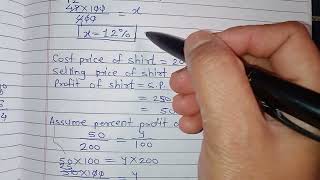 12
48×100 = x
400
x = 12%
Cost price of shirt = 20
Selling price of shirt
Profit of shirt = S.P.
= 250
= 50
Assume percent profit o
50 = y
200 100
50×100 = y×200
25
50×100 = y